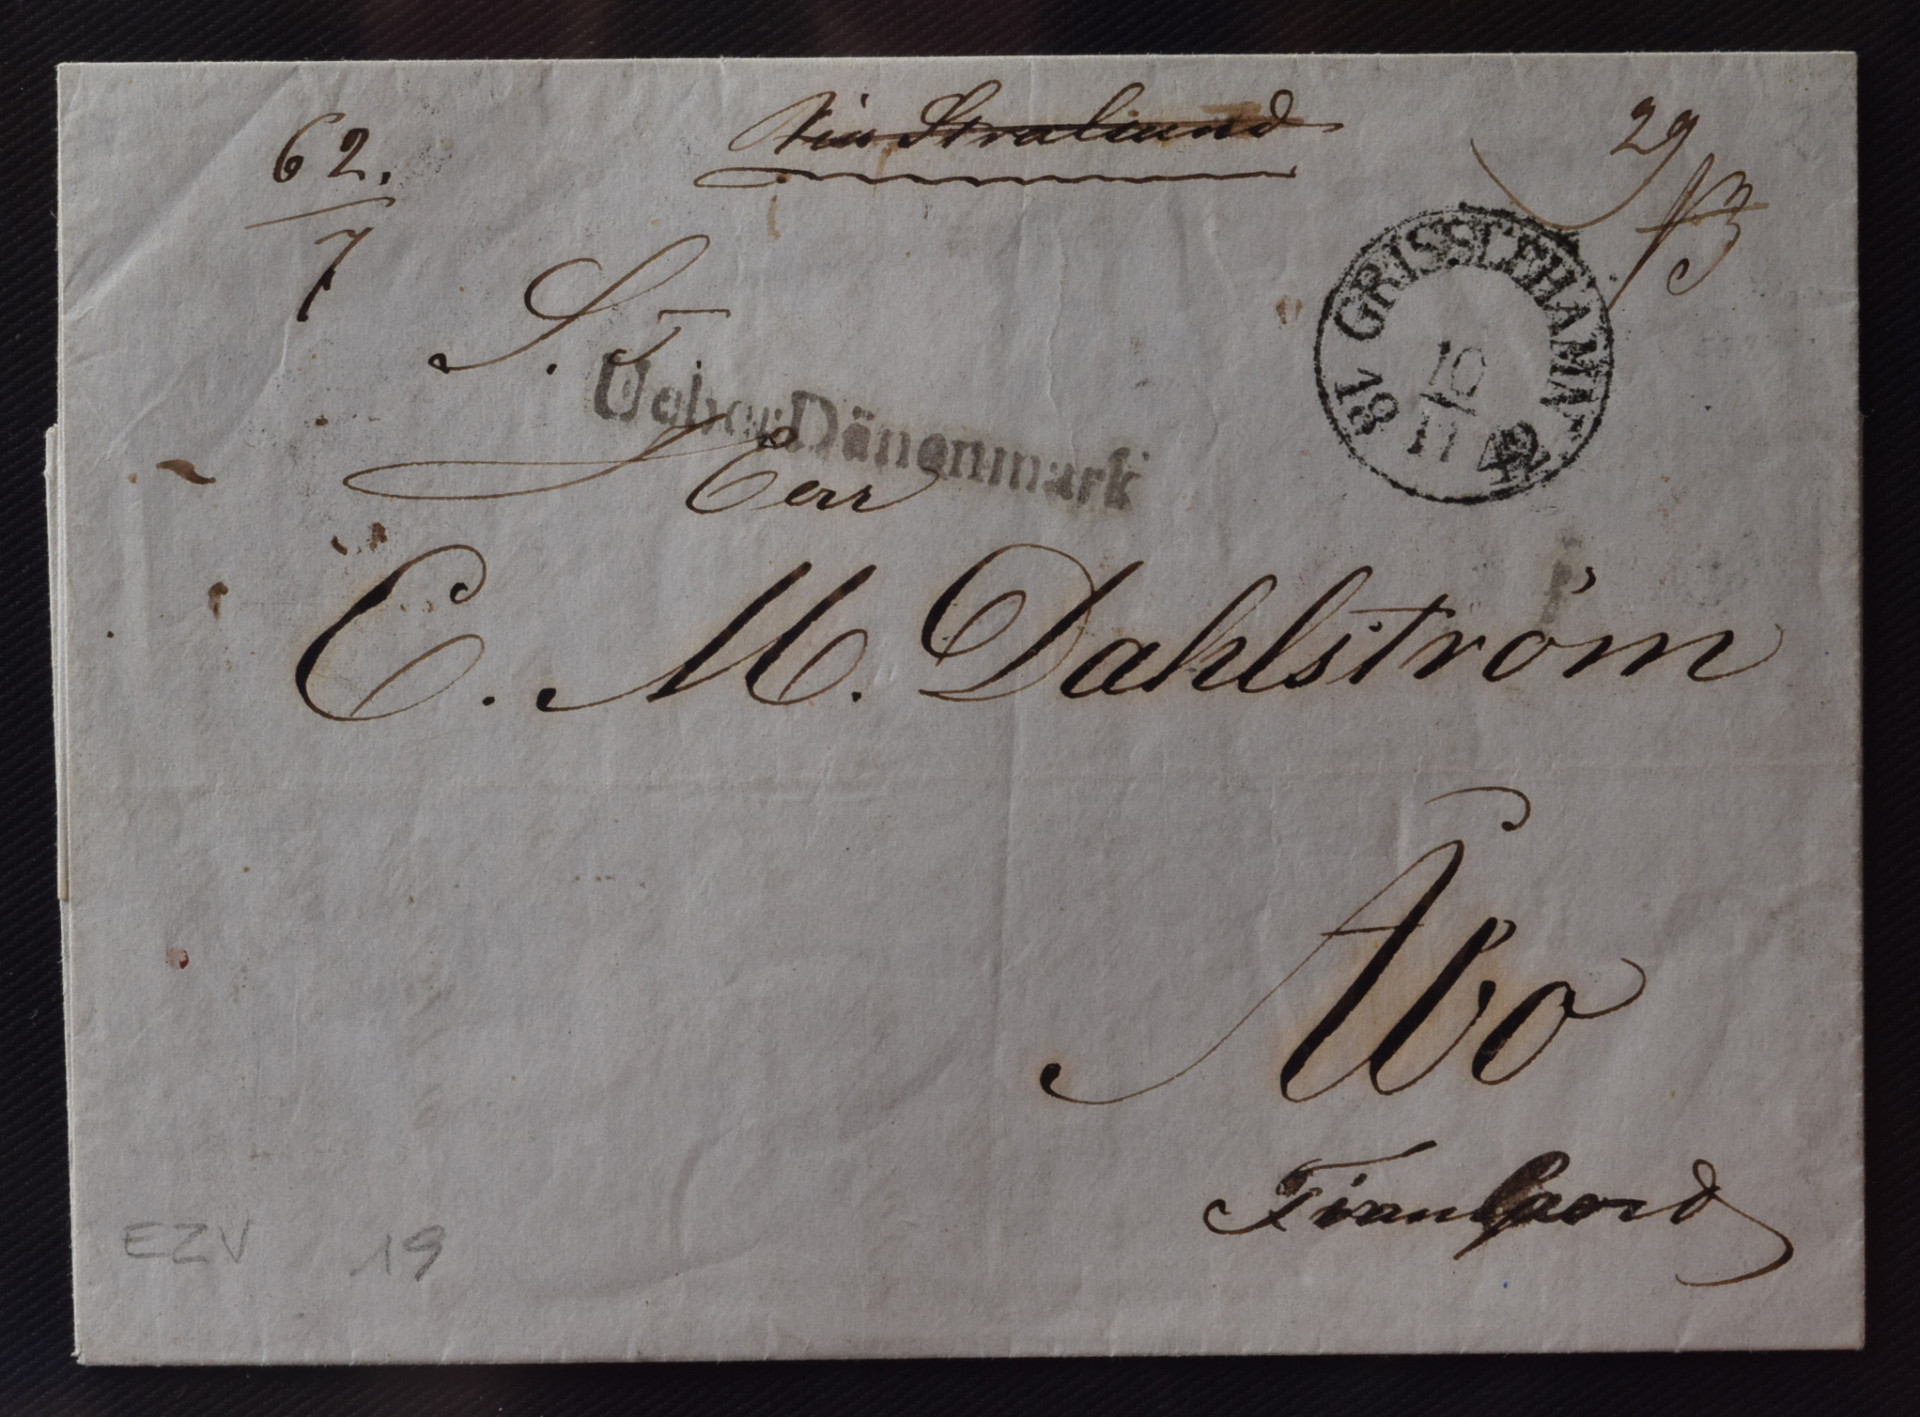 62.
7
Via Stralsund
29
S. T.
Ueber Dänenmark
GRISSLEHAMN
18 42
10
11
Herr
E. M. Dahlström
Åbo
Finnland
EZV 19